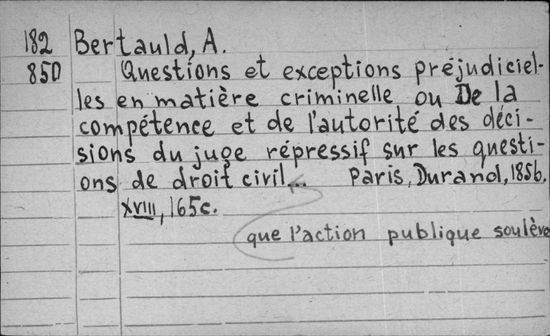 182 Bertauld, A.
850 Questions et exceptions préjudiciel-
les en matière criminelle ou De la
compétence et de l'autorité des déci-
sions du juge répressif sur les questi-
ons de droit civil... Paris, Durand, 1856.
XVIII, 165c.
que l'action publique soulève